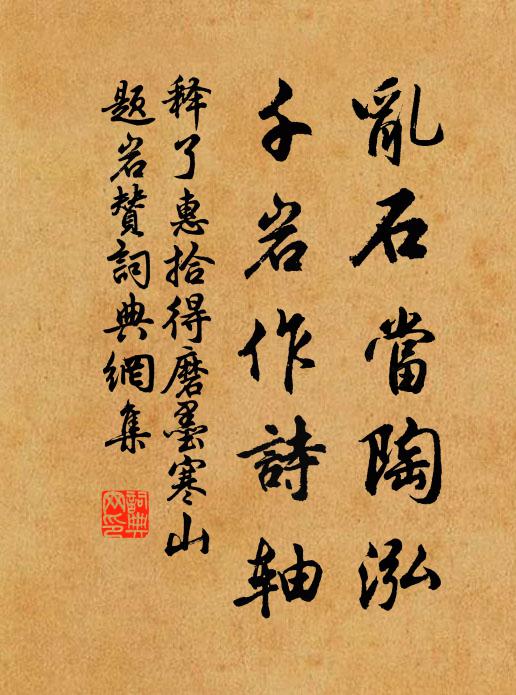 亂石當陶泓
千岩作詩軸
释了惠拾得磨墨寒山
题岩贊詞典網集
詞典网印